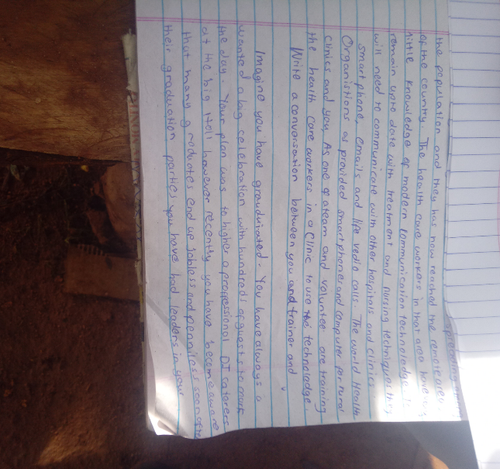 the population and they has now reached the remote area
of the country. The health care workers in that area
little knowledge of modern communication
remain upto date with treatment and nursing techniques they
will need to communicate with other hospitals and clinics
smartphone, emails and life vedio calls. The world Health
Organistions as provided smartphone and computer for rural
clinics and you As one of a team and voluntee are training
the health care workers in a clinic to use this technoledge
Write a convorsation between you and trainer and
Imagine you have graudinated. You have always a
wanted a big celebration with hundred of guest to mark
the day. Your plan was to higher a proffessional DJ caterers
at the big Hall however recently you have become aware
that many graduates end up jobless and pennyless soon after
their graduation parties, you have had leaders in your